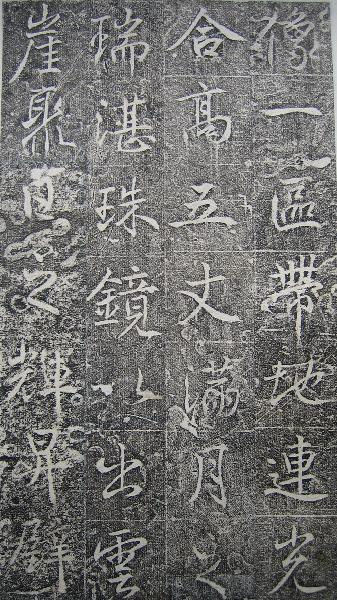 像一區帶地連光
合高五丈滿月之
瑞湛珠鏡以出雲
崖聚日之輝昇璧